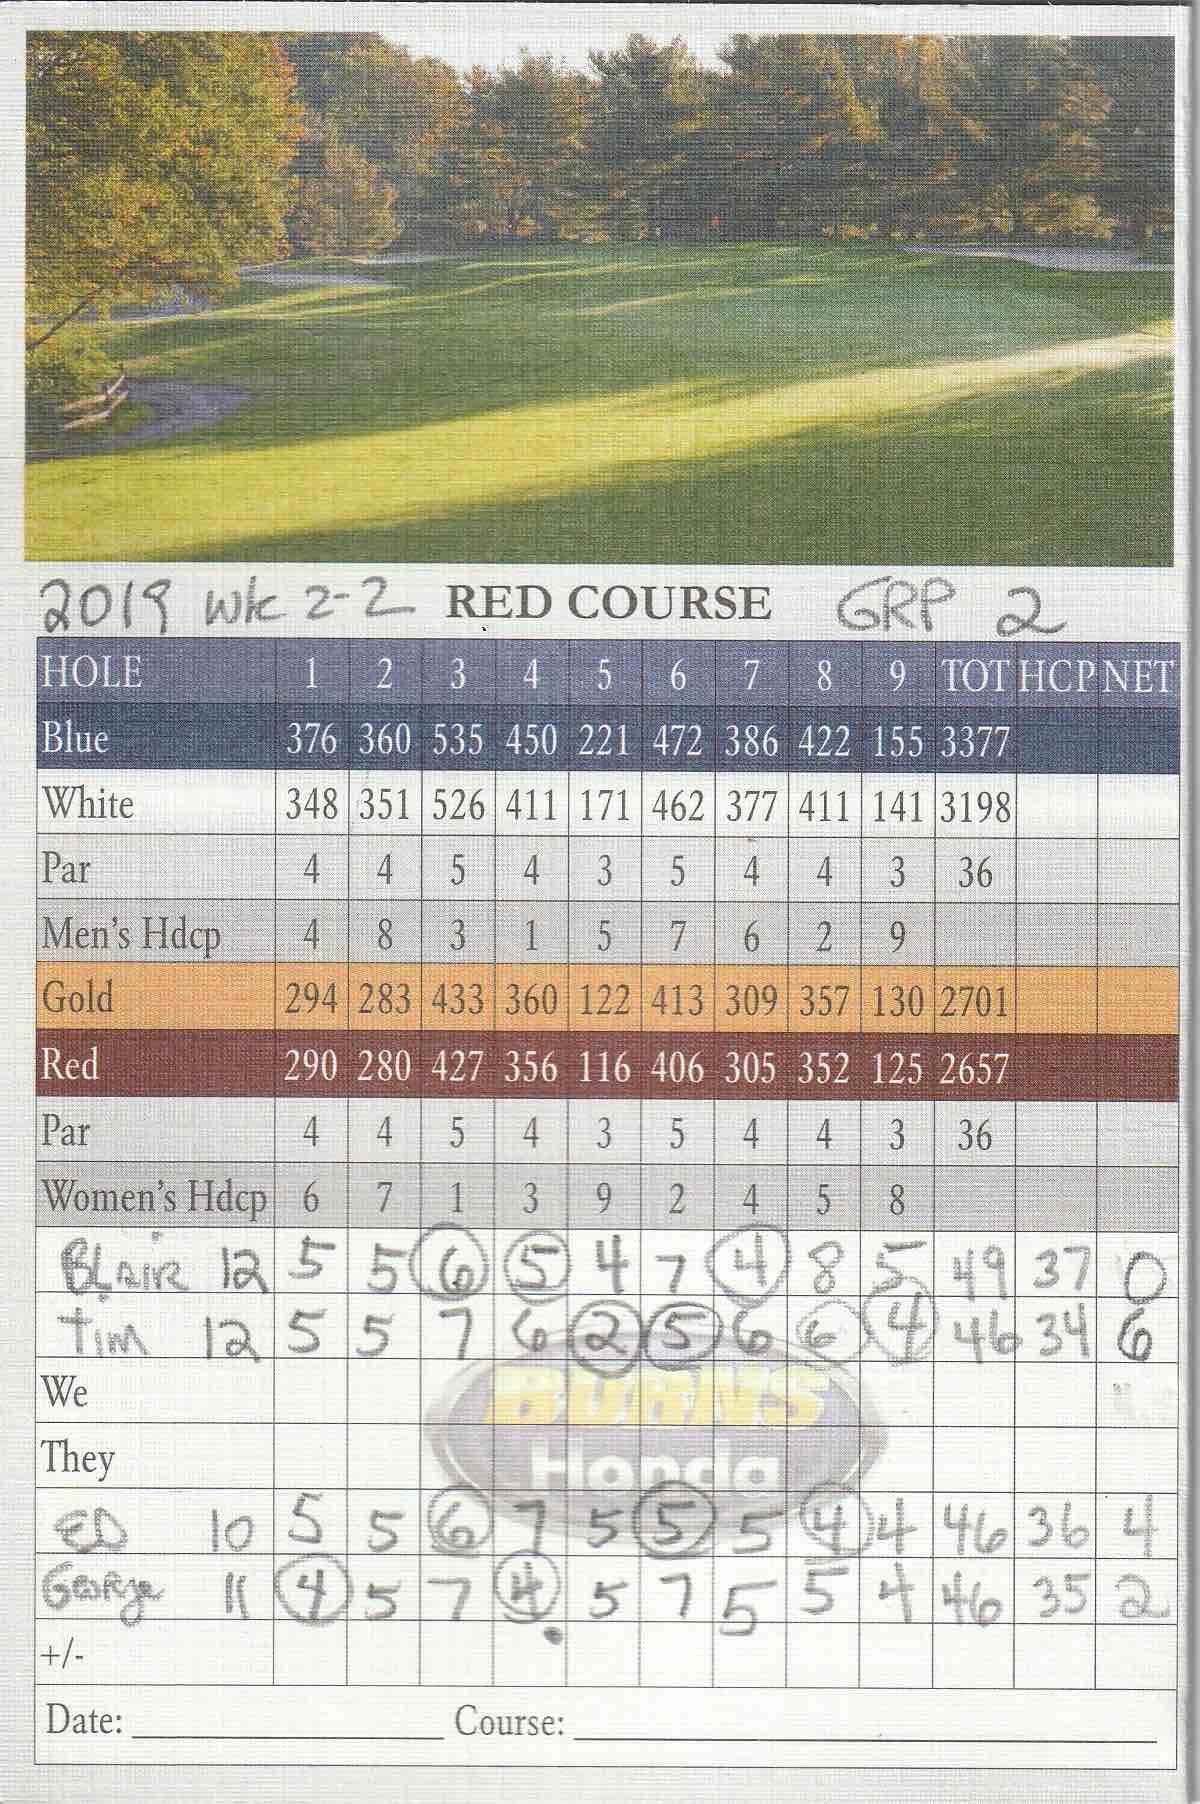 2019 wk 2-2 RED COURSE GRP 2
HOLE 1 2 3 4 5 6 7 8 9 TOT HCP NET
Blue 376 360 535 450 221 472 386 422 155 3377
White 348 351 526 411 171 462 377 411 141 3198
Par 4 4 5 4 3 5 4 4 3 36
Men's Hdcp 4 8 3 1 5 7 6 2 9
Gold 294 283 433 360 122 413 309 357 130 2701
Red 290 280 427 356 116 406 305 352 125 2657
Par 4 4 5 4 3 5 4 4 3 36
Women's Hdcp 6 7 1 3 9 2 4 5 8
BLAIR 12 5 5 6 5 4 7 4 8 5 49 37 0
TIM 12 5 5 7 6 2 5 6 6 4 46 34 6
We
BURNS
They
Honda
ED 10 5 5 6 7 5 5 5 4 4 46 36 4
George 11 4 5 7 4 5 7 5 5 4 46 35 2
+/-
Date: Course: